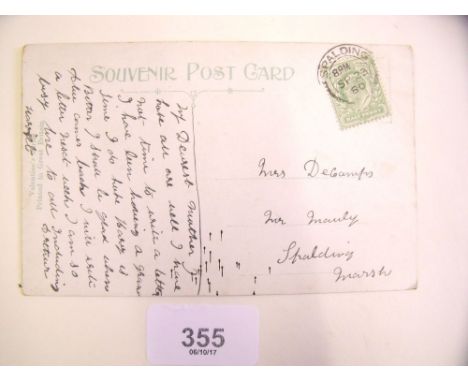 SOUVENIR POST CARD
SPALDING
8 PM
My Dearest Mother I
hope all are well I have
not time to write a letter
I have been having a grand
time I do hope Harry is
Better I shall be glad when
comes back I will write
a letter next week I am so
busy love to all Including
Arthur
Mrs DeCamps
Mr Mauly
Spalding
Marsh
355
06/10/17